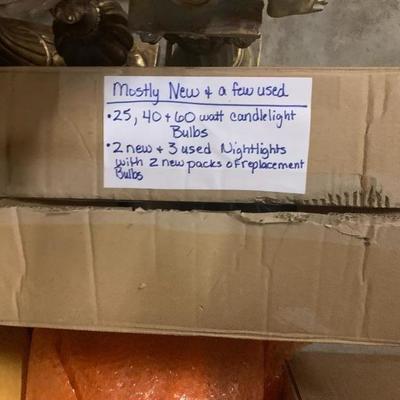 Mostly New + a few used
• 25, 40 + 60 watt candlelight
Bulbs
• 2 new + 3 used Nightlights
with 2 new packs of replacement
Bulbs